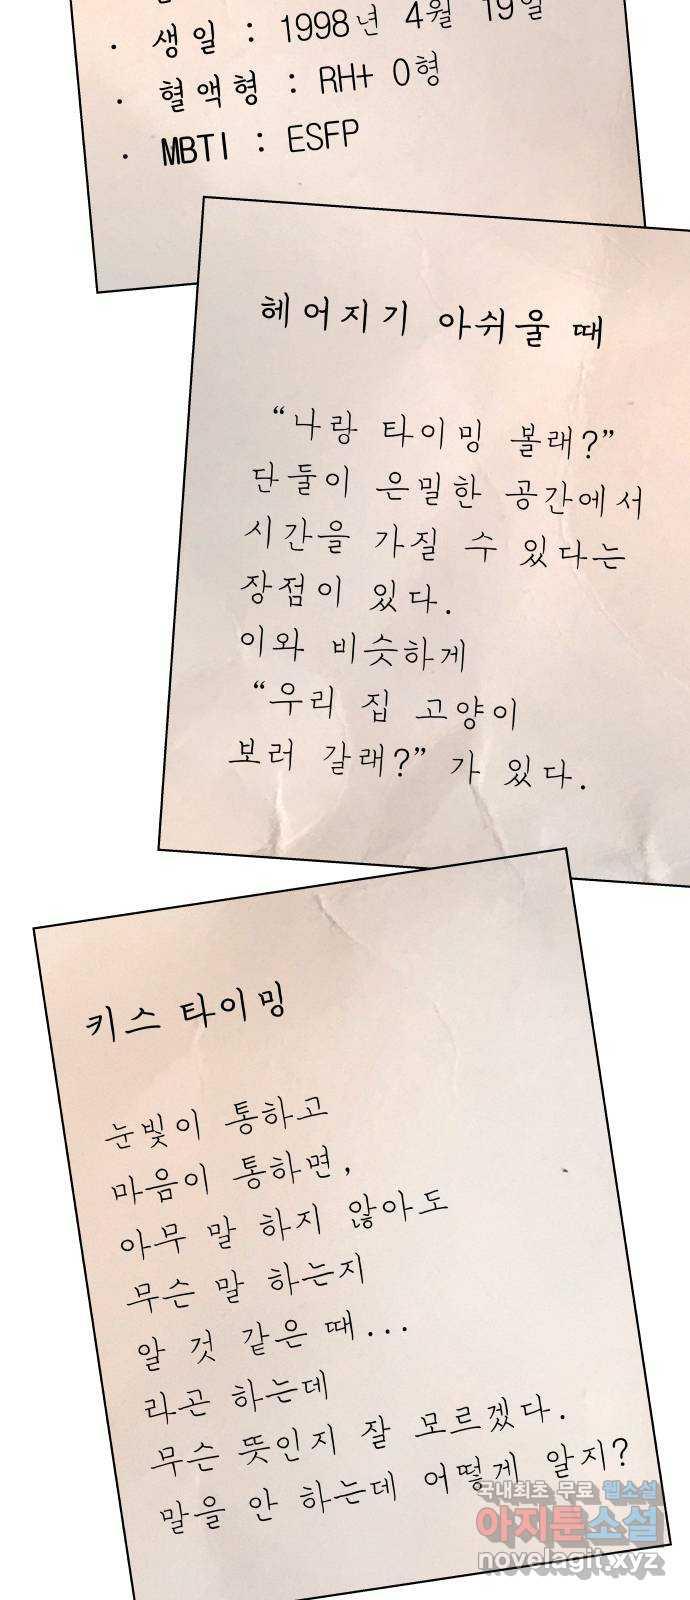 · 생일 : 1998년 4월 19일
· 혈액형 : RH+ O형
· MBTI : ESFP
헤어지기 아쉬울 때
“나랑 타이밍 볼래?”
단둘이 은밀한 공간에서
시간을 가질 수 있다는
장점이 있다.
이와 비슷하게
“우리 집 고양이
보러 갈래?” 가 있다.
키스 타이밍
눈빛이 통하고
마음이 통하면,
아무 말 하지 않아도
무슨 말 하는지
알 것 같은 때...
라곤 하는데
무슨 뜻인지 잘 모르겠다.
말을 안 하는데 어떻게 알지?
국내최초 무료 웹소설
아지툰소설
novelagit.xyz